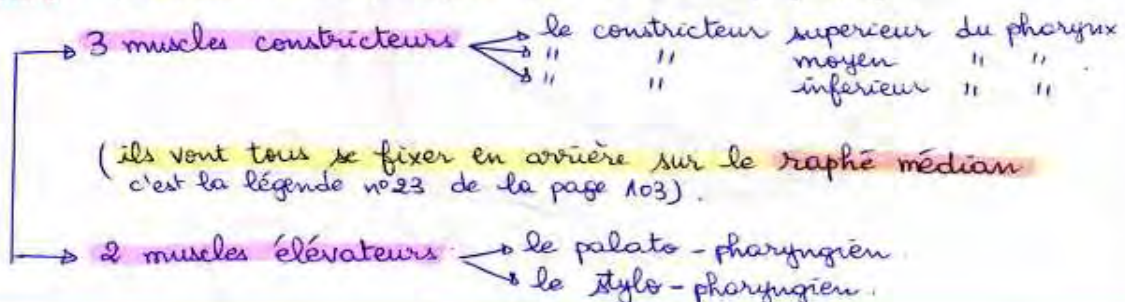 3 muscles constricteurs → le constricteur superieur du pharynx
→ " " moyen " "
→ " " inferieur " "
(ils vont tous se fixer en arrière sur le raphé médian
c'est la légende n°23 de la page 103).
2 muscles élévateurs → le palato-pharyngien.
→ le stylo-pharyngien.